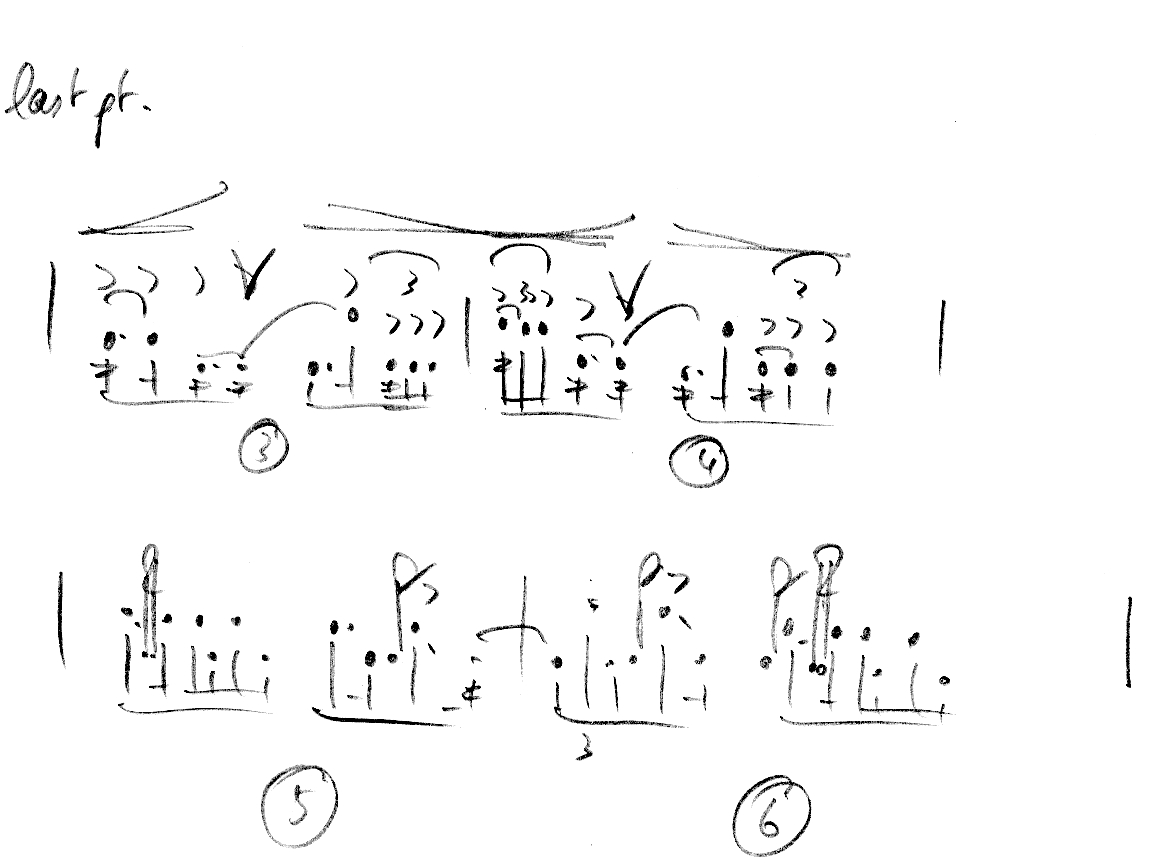 last pt.
3 3
3 4
3
5 6